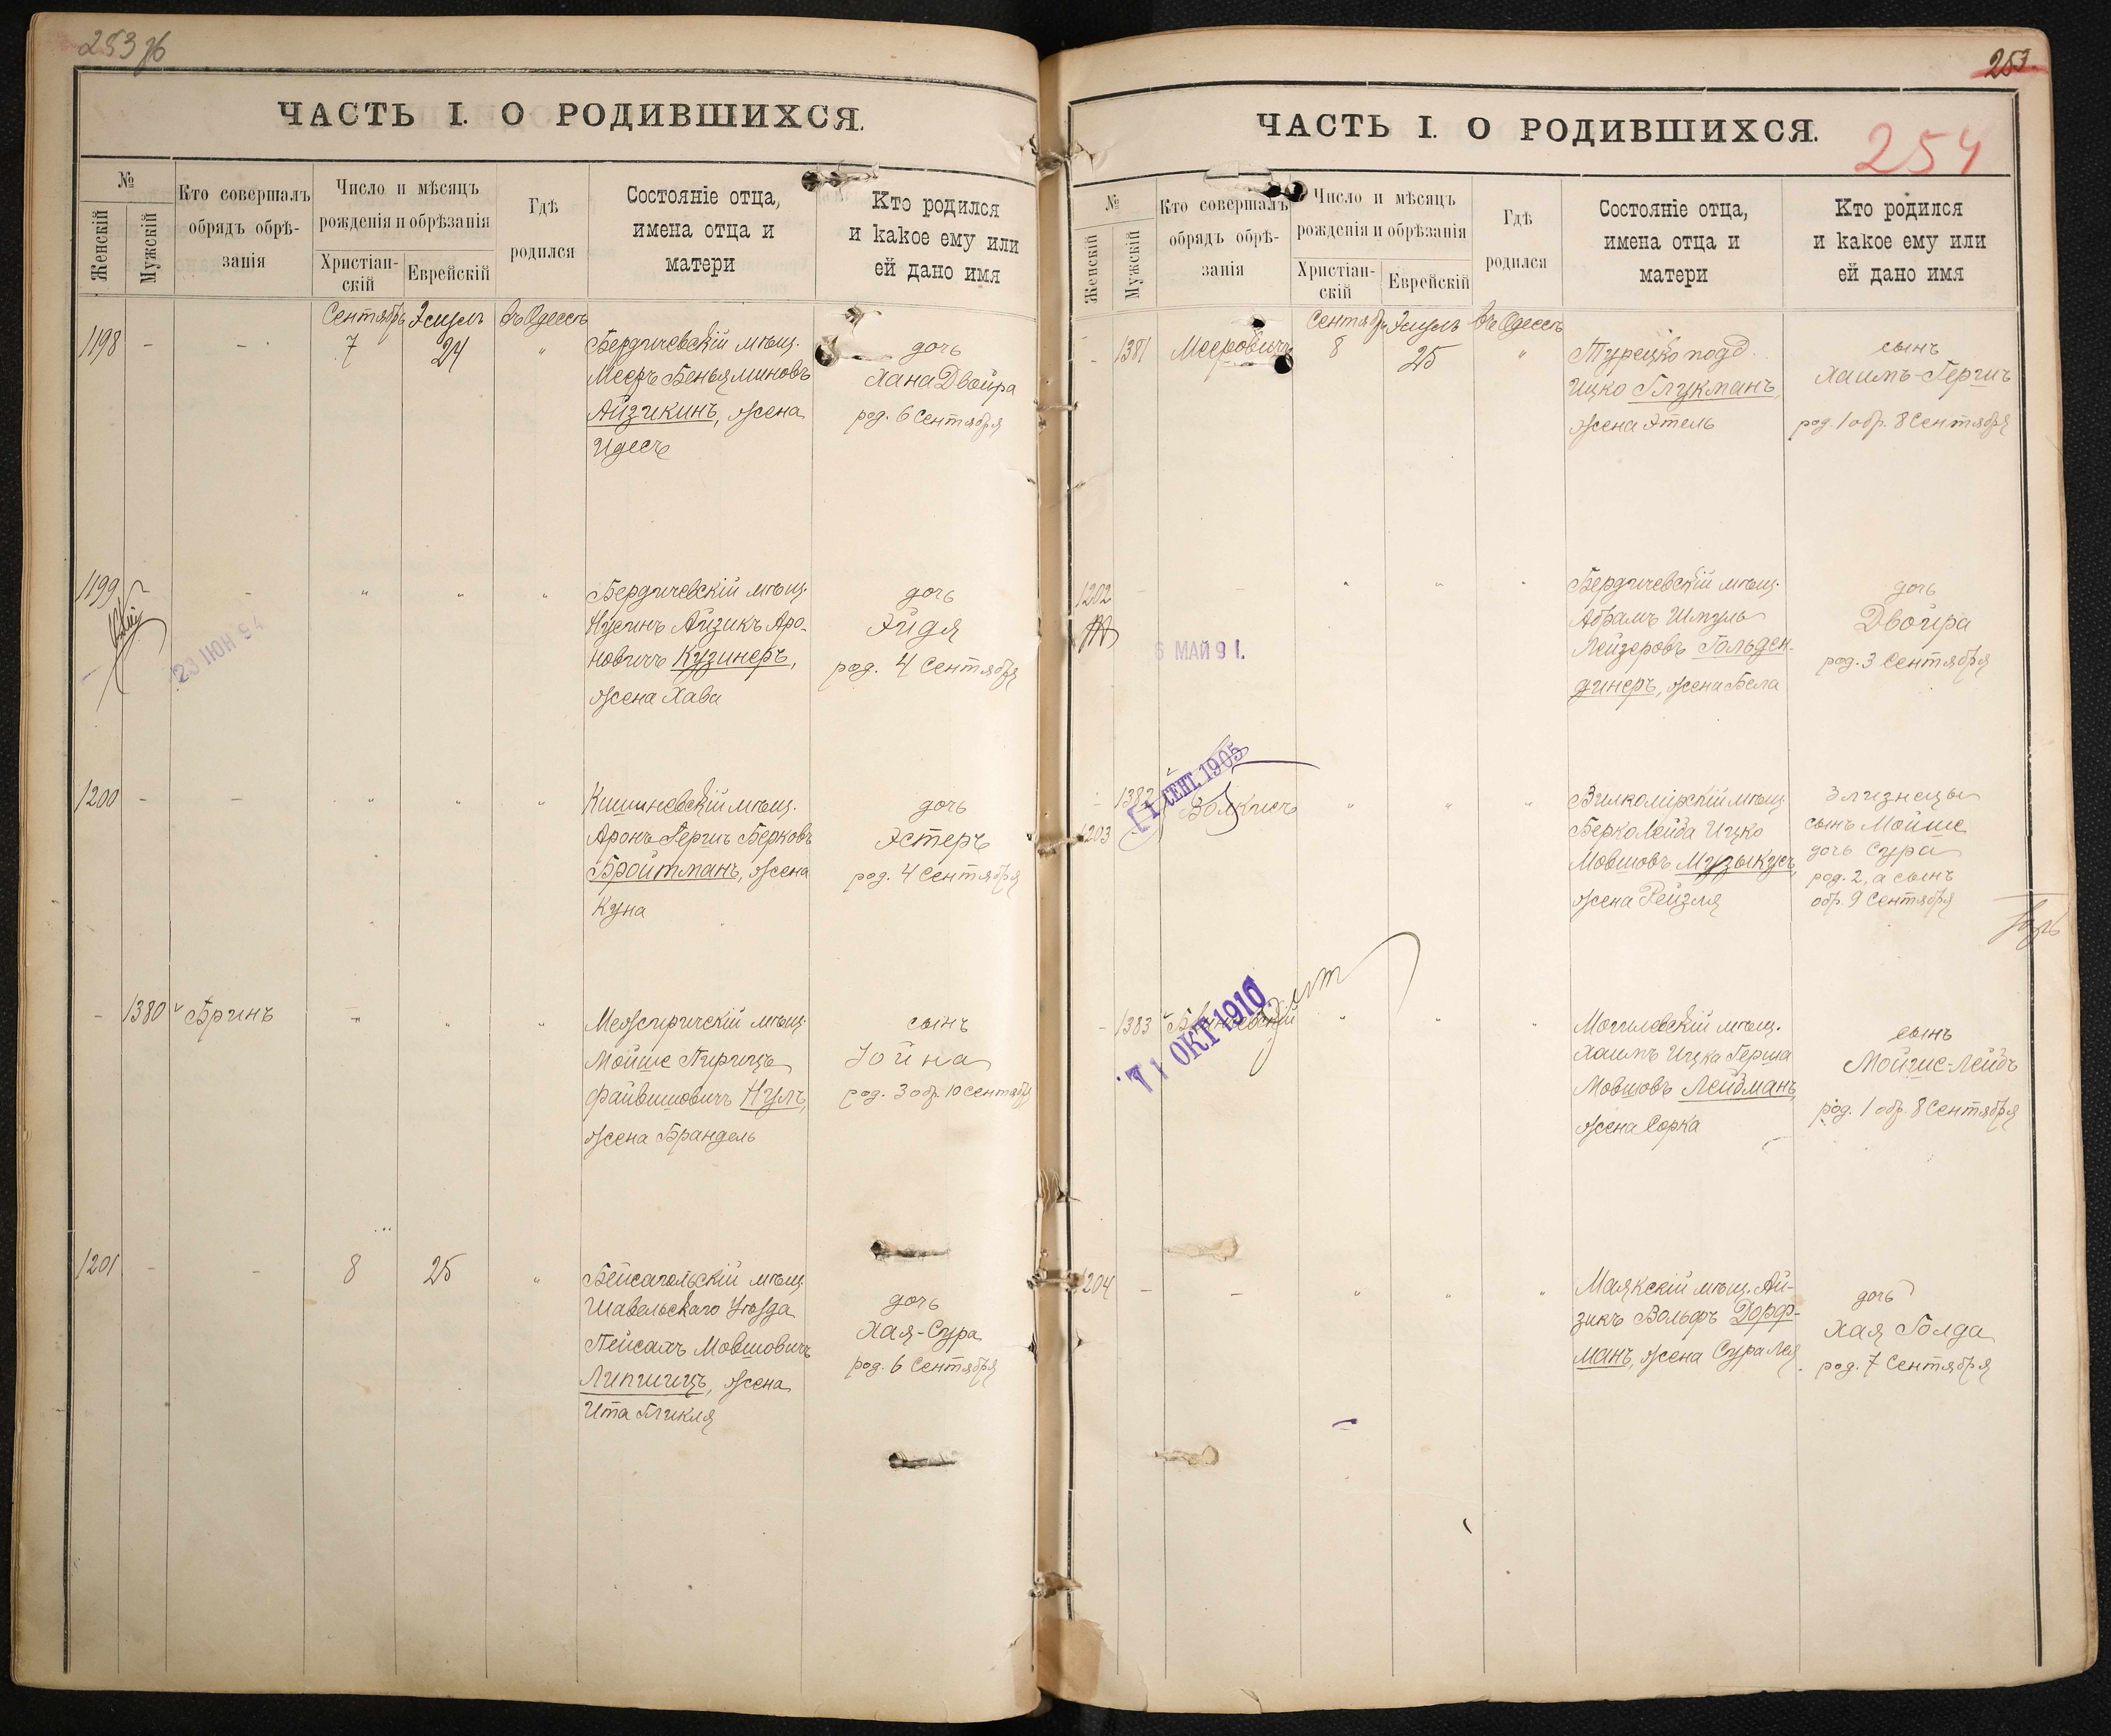 253
ЧАСТЬ I. О РОДИВШИХСЯ.
№
Женскій
Мужскій
Кто совершалъ
обрядъ обрѣ-
занія
Число и мѣсяцъ
рожденія и обрѣзанія
Христіан-
скій
Еврейскій
Гдѣ
родился
Состояніе отца,
имена отца и
матери
Кто родился
и какое ему или
ей дано имя
Сентябрь Элулъ въ Одессѣ
1198 - - 7 24 "
Бердичевскій мѣщ.
Мееръ Беньяминовъ
Айзикинъ, жена
Идесъ
дочь
Хана Двойра
род. 6 Сентября
1199 - " " "
23 ІЮН 94
Бердичевскій мѣщ.
Нусинъ Айзикъ Аро-
новичъ Кузинеръ,
жена Хава
дочь
Эйдя
род. 4 Сентября
1200 - - " " "
Кишиневскій мѣщ.
Аронъ Гершъ Берковъ
Бройтманъ, жена
Куна
дочь
Эстеръ
род. 4 Сентября
- 1380 Бринъ " " "
Межиричскій мѣщ.
Мойше Пирицъ
Файвишовичъ Нулъ,
жена Брандель
сынъ
Іойна
род. 3 обр. 10 Сентября
1201 - - 8 25 "
Бейсагольскій мѣщ.
Шавельскаго Уѣзда
Пейсахъ Мовшовичъ
Липшицъ, жена
Ита Гликля
дочь
Хая-Сура
род. 6 Сентября
253.
254
ЧАСТЬ I. О РОДИВШИХСЯ.
№
Женскій
Мужскій
Кто совершалъ
обрядъ обрѣ-
занія
Число и мѣсяцъ
рожденія и обрѣзанія
Христіан-
скій
Еврейскій
Гдѣ
родился
Состояніе отца,
имена отца и
матери
Кто родился
и какое ему или
ей дано имя
Сентябрь Элулъ въ Одессѣ
- 1381 Мееровичъ 8 25 "
Турецко под.
Ицко Глукманъ,
жена Этель
сынъ
Хаимъ-Гершъ
род. 1 обр. 8 Сентября
1202 - - " " "
6 МАЙ 91.
Бердичевскій мѣщ.
Абрамъ Шмуль
Лейзеровъ Гольден-
динеръ, жена Бела
дочь
Двойра
род. 3 Сентября
1 СЕНТ. 1905
- 1382 Волкисъ " " "
1203
Вилкомірскій мѣщ.
Берко Лейба Ицко
Мовшовъ Музыкусъ,
жена Рейзля
близнецы
сынъ Мойше
дочь Сура
род. 2, а сынъ
обр. 9 Сентября
- 1383 " " "
11 ОКТ 1910
Могилевскій мѣщ.
Хаимъ Ицка Герша
Мовшовъ Лейбманъ,
жена Сорка
сынъ
Мойше-Лейбъ
род. 1 обр. 8 Сентября
1204 - - " " "
Маякскій мѣщ. Ай-
зикъ Вольфъ Дорф-
манъ, жена Сура Лея
дочь
Хая Голда
род. 7 Сентября